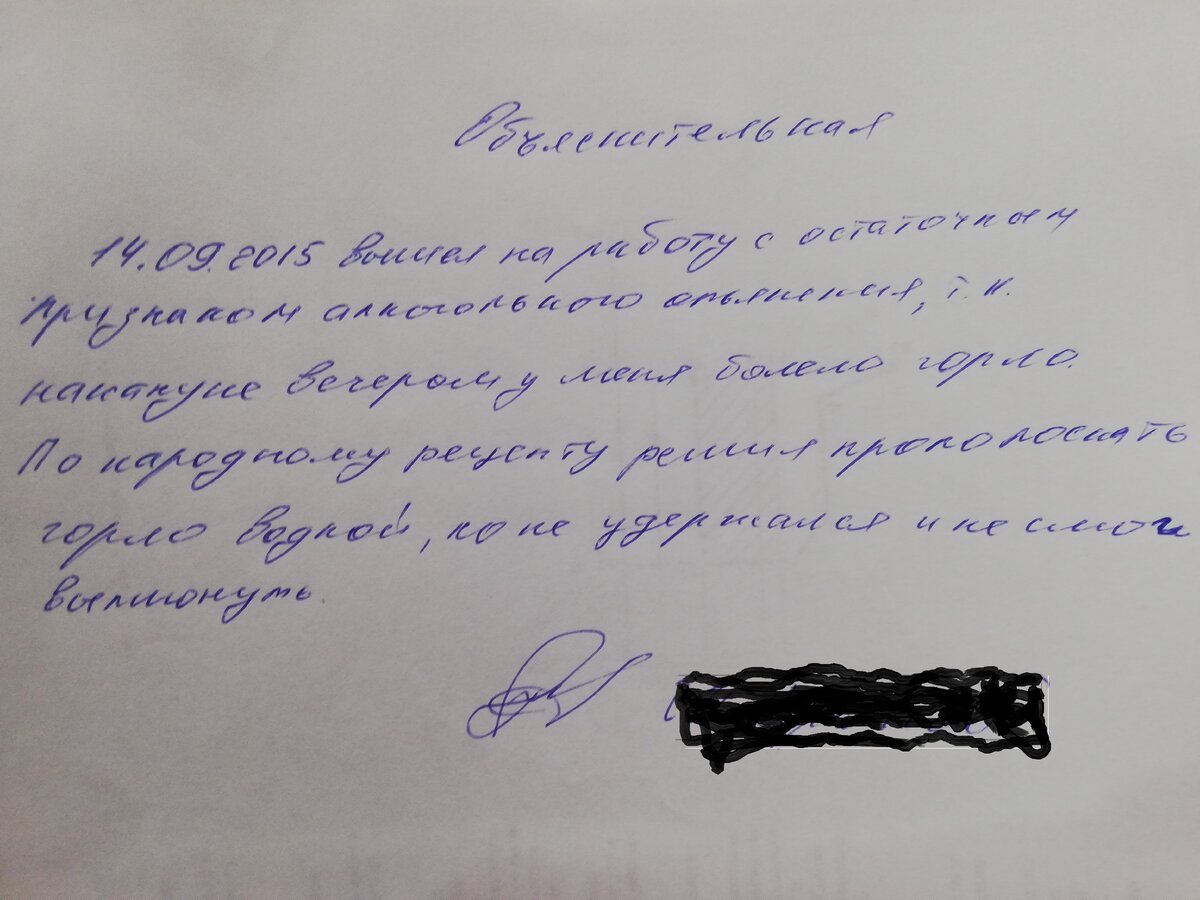 Объяснительная
14.09.2015 вышел на работу с остаточным
признаком алкогольного опьянения, т.к.
накануне вечером у меня болело горло.
По народному рецепту решил прополоскать
горло водкой, но не удержался и не смог
выплюнуть.